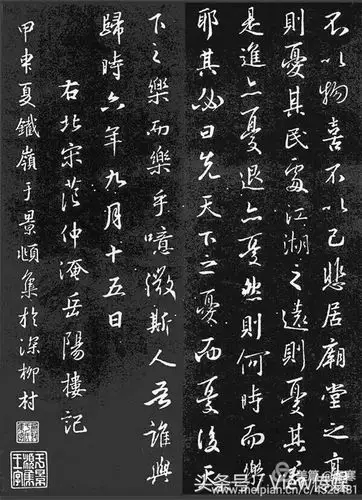 不以物喜不以己悲居廟堂之高
則憂其民處江湖之遠則憂其君
是進亦憂退亦憂然則何時而樂
耶其必曰先天下之憂而憂後天
下之樂而樂乎噫微斯人吾誰與
歸時六年九月十五日
右北宋范仲淹岳陽樓記
甲申夏鐵嶺于景頫集於深柳村